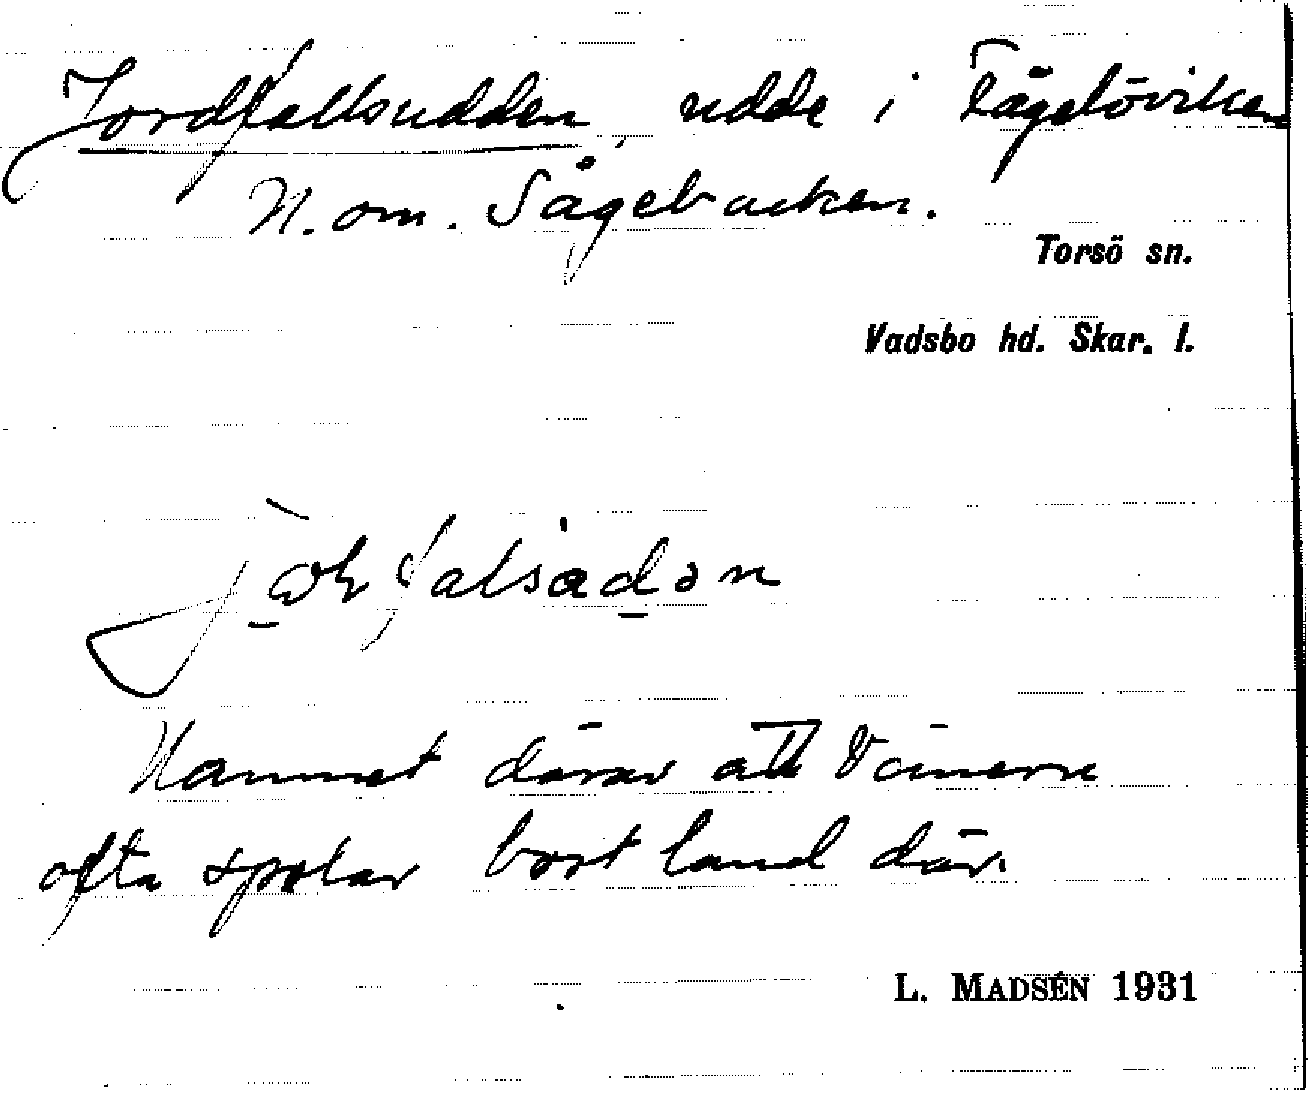 Jordfallsudden, udde i Fågelöviken
N. om. Sågebacken.
Torsö sn.
Vadsbo hd. Skar. l.
Namnet därav att Vänern
ofta spolar bort land där.
L. MADSÉN 1931